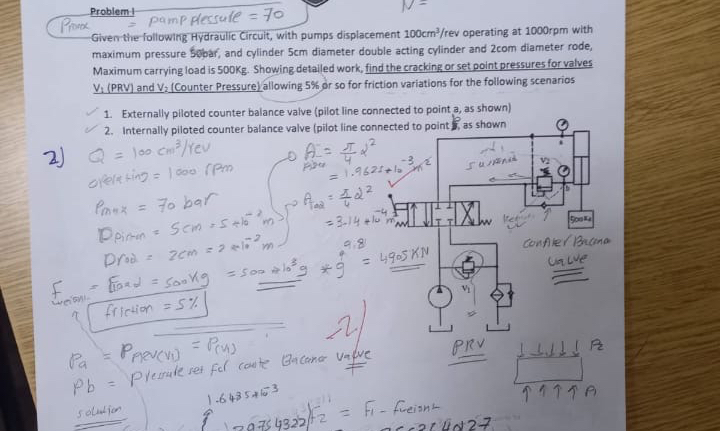 Problem I
Pmax = pump plessure = 70
Given the following Hydraulic Circuit, with pumps displacement 100cm³/rev operating at 1000rpm with
maximum pressure 50bar, and cylinder 5cm diameter double acting cylinder and 2com diameter rode,
Maximum carrying load is 500Kg. Showing detailed work, find the cracking or set point pressures for valves
V₁ (PRV) and V₂ (Counter Pressure) allowing 5% or so for friction variations for the following scenarios
1. Externally piloted counter balance valve (pilot line connected to point a, as shown)
2. Internally piloted counter balance valve (pilot line connected to point b, as shown
2) Q = 100 cm³/rev
operating = 1000 rpm
Pmax = 70 bar
Dpiston = 5cm = 5*10⁻² m
Drod = 2cm = 2*10⁻² m
A = π/4 d²
= 1.9625*10⁻³ m²
Arod = π/4 d²
= 3.14*10⁻⁴ m
Fload = 500Kg = 500*10³ g * g 9.8 = 4905 KN
friction = 5%
Pa = PPRV(V1) = P(V1)
Pb = Pressure set for conte Bacance valve
solution
1.6435*10⁻³
F2 = F1 - Fweight
V2
a
b
500Kg
V₁
PRV
conter Bacance
valve
P2
A